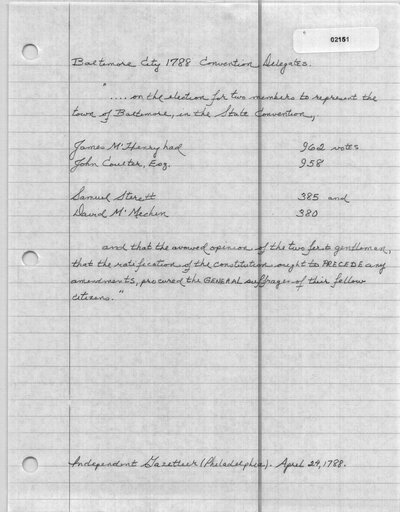 02151
Baltimore City 1788 Convention Delegates.
"
.... on the election for two members to represent the
town of Baltimore, in the State Convention,
James M'Henry had 962 votes
John Coulter, Esq. 958
Samuel Sterett 385 and
David M'Mechin 380
and that the avowed opinion of the two first gentlemen,
that the ratification of the constitution ought to PRECEDE any
amendments, procured the GENERAL suffrages of their fellow
citizens."
Independent Gazetteer (Philadelphia). April 24, 1788.